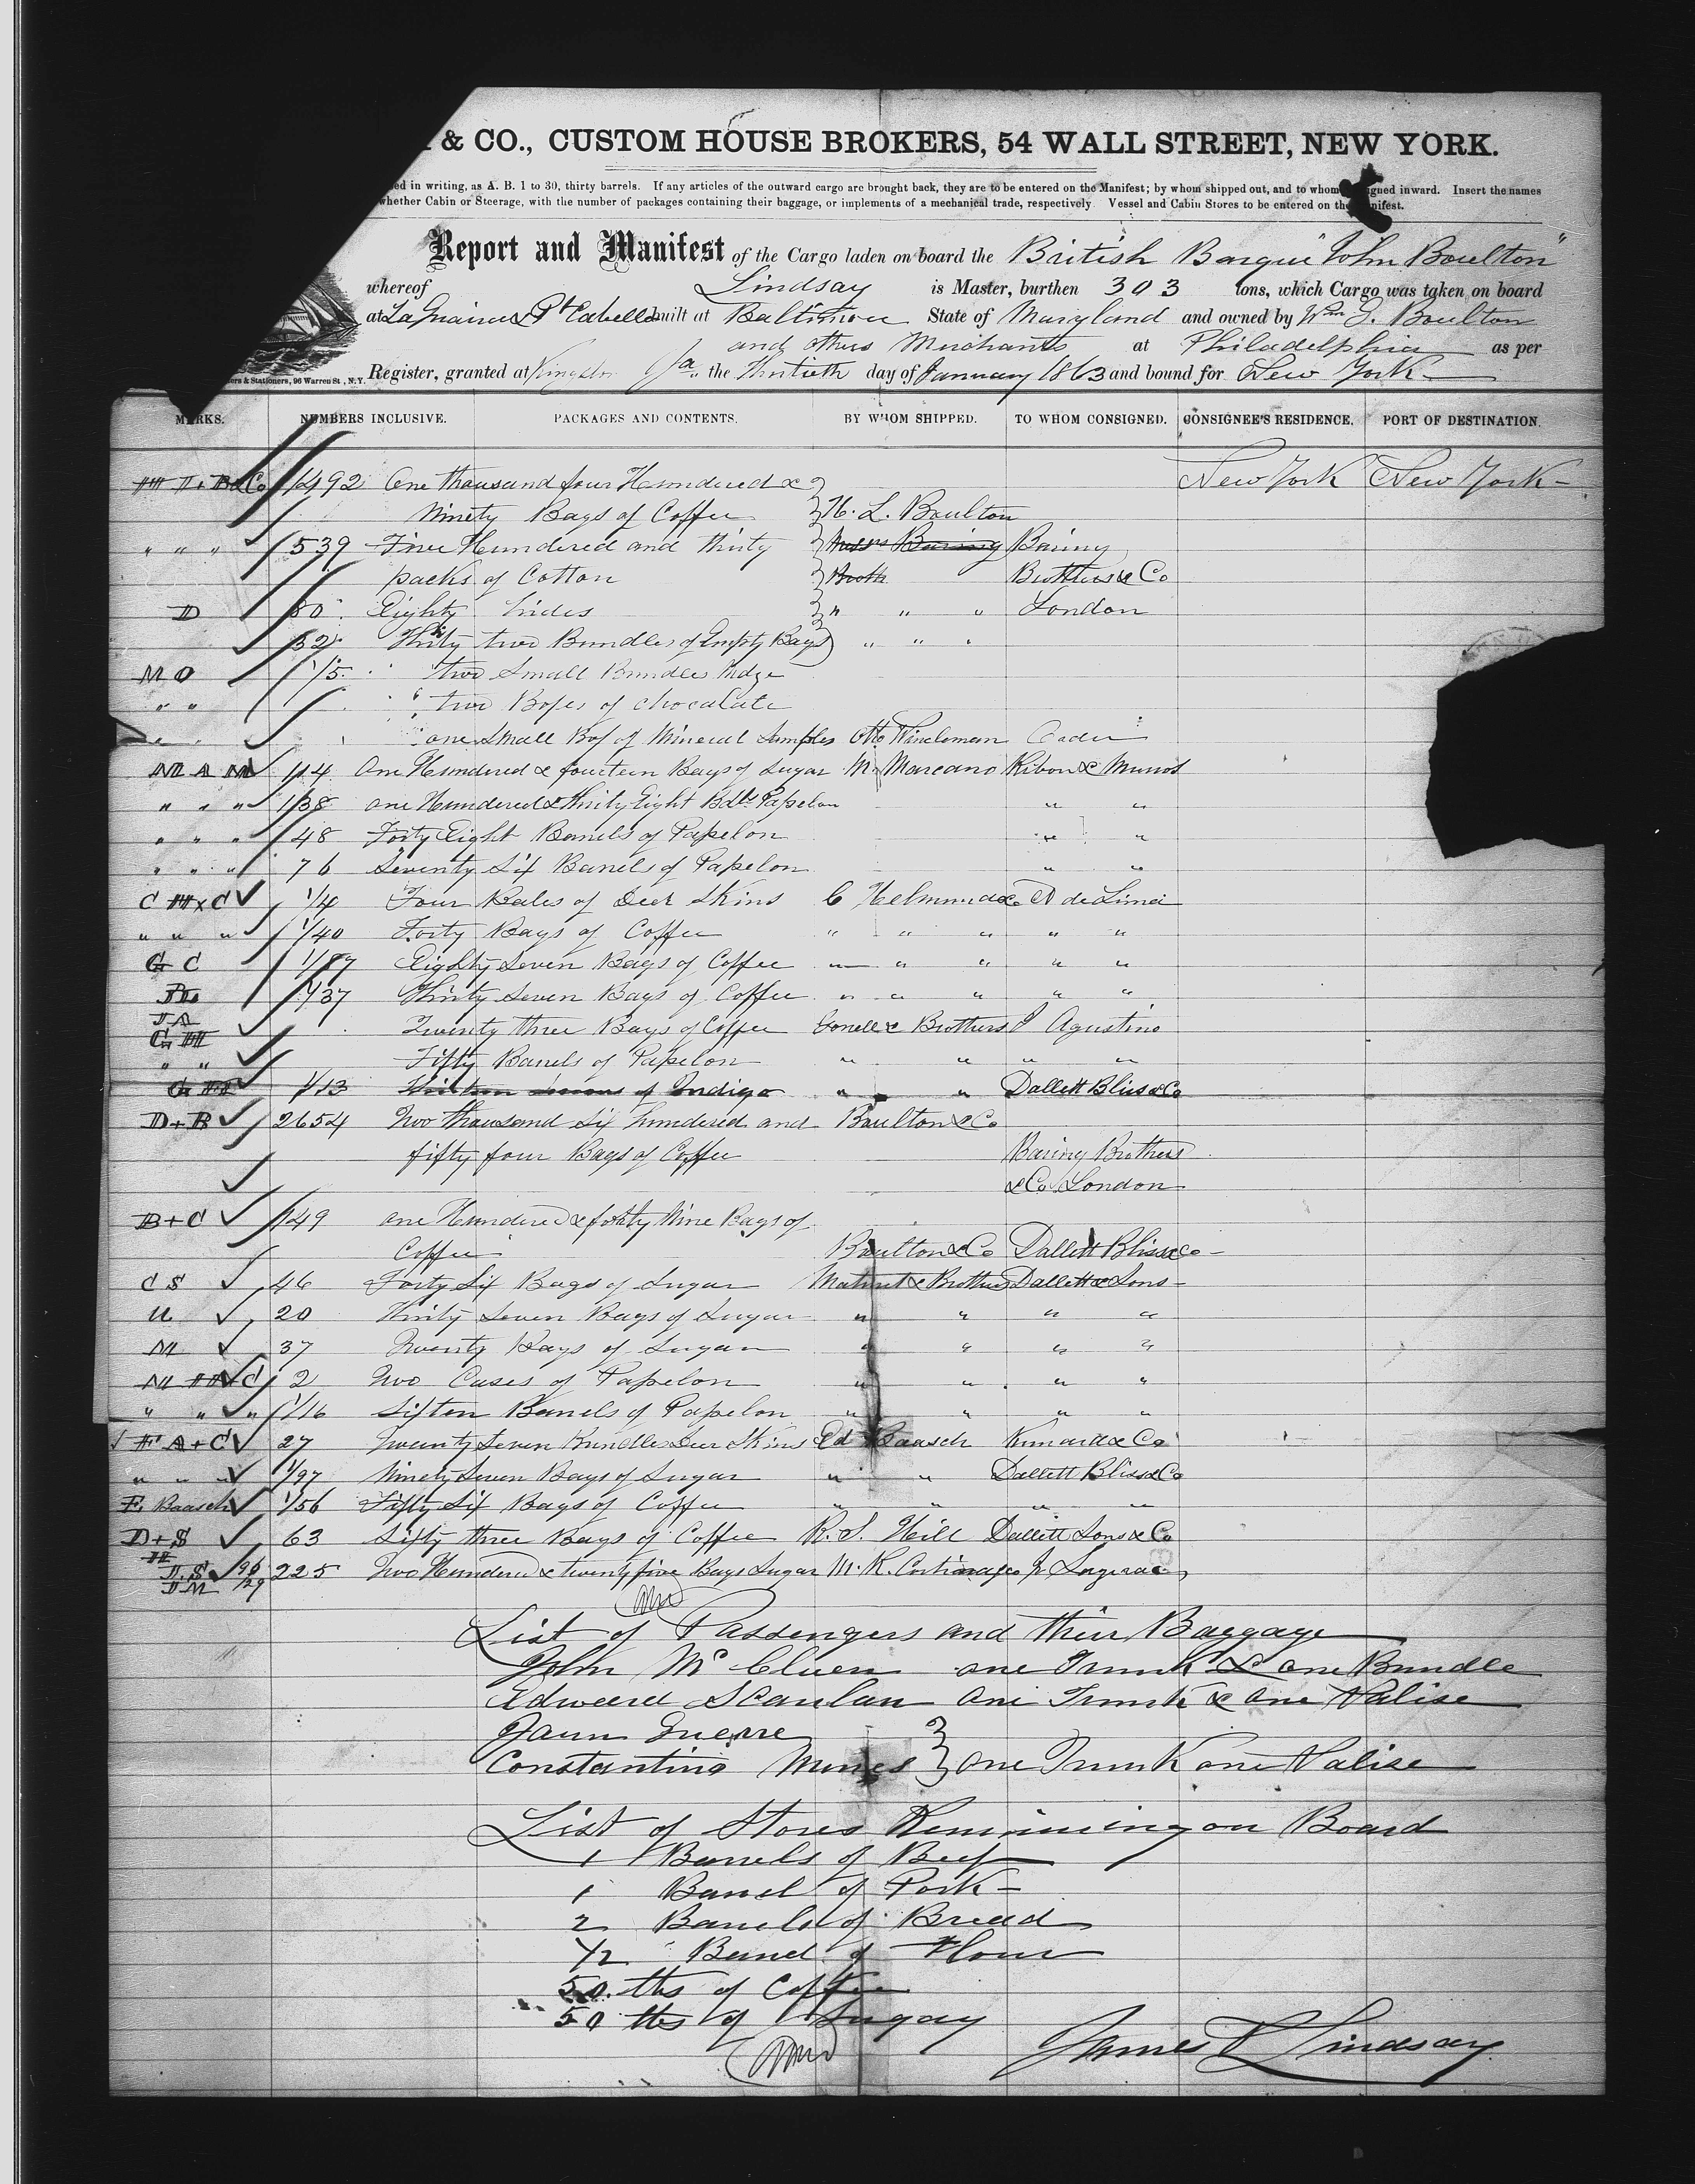 & CO., CUSTOM HOUSE BROKERS, 54 WALL STREET, NEW YORK.
ed in writing, as A. B. 1 to 30, thirty barrels. If any articles of the outward cargo are brought back, they are to be entered on the Manifest; by whom shipped out, and to whom signed inward. Insert the names
whether Cabin or Steerage, with the number of packages containing their baggage, or implements of a mechanical trade, respectively Vessel and Cabin Stores to be entered on the nifest.
Report and Manifest of the Cargo laden on board the British Barque "John Boulton"
whereof Lindsay is Master, burthen 303 tons, which Cargo was taken on board
at La Guaira & Pt Cabello built at Baltimore State of Maryland and owned by Wm G. Boulton
and others Merchants at Philadelphia as per
ers & Stationers, 96 Warren St, N.Y. Register, granted at Kingston Ja. the Thirtieth day of January 1863 and bound for New York
MARKS. NUMBERS INCLUSIVE. PACKAGES AND CONTENTS. BY WHOM SHIPPED. TO WHOM CONSIGNED. CONSIGNEE'S RESIDENCE. PORT OF DESTINATION.
1492 One thousand four Hundered & New York New York
Ninety Bags of Coffee H. L. Boulton
" " " 539 Five Hundered and thirty Messrs Baring Baring
packs of Cotton Broth Brothers & Co
D 80 Eighty hides " " " London
32 Thirty two Bundles of Empty Bags " " "
M O 1/5 two Small Bundles Indgo
" " two Boxes of chocalate
one Small Box of Mineral Samples Otto Order
M A M 114 One Hundered & fourteen Bags of Sugar M. Marcano Ribon & Munos
" " " 138 one Hundered & thirty Eight Bdls Papelon " "
" " " 48 Forty Eight Barrels of Papelon " "
" " " 76 Seventy Six Barrels of Papelon " "
C H x C 1/4 Four Bales of Deer Skins C Hellmund & Co D de Lima
" " " 1/40 Forty Bags of Coffee " " " " "
G C 1/87 Eighty Seven Bags of Coffee " " " " "
1/37 Thirty Seven Bags of Coffee " " " " "
J A
G H Twenty three Bags of Coffee & Brothers J Agustino
" " Fifty Barrels of Papelon " " " "
G H 1/13 of Indigo " " Dallett Bliss & Co
D + B 2654 Two thousand six hundered and Boulton & Co
fifty four Bags of Coffee Baring Brothers
& Co London
B + C 149 one Hundered & forty Nine Bags of
Coffee Boulton & Co Dallett Bliss & Co
C S 46 Forty Six Bags of Sugar & Brothers Dallett & Sons
U 20 Thirty Seven Bags of Sugar " " " "
M 37 Twenty Bags of Sugar " " " "
M H & C 2 Two Cases of Papelon " " " "
" " " 1/16 Sixten Barrels of Papelon " " " "
F A + C 27 Twenty Seven Bundles Deer Skins Ed Baasch Kunardt & Co
" " " 1/97 Ninety Seven Bags of Sugar " " Dallett Bliss & Co
F. Baasch 1/56 Fifty Six Bags of Coffee " " " "
D + S 63 Sixty three Bags of Coffee R. S. Hill Dallett Sons & Co
J. S 98/129 225 Two Hundered & twenty five Bags Sugar M. R.
J M
List of Passengers and their Baggage
John McCluen one Trunk & one Bundle
Edward Scanlan one Trunk & one Valise
Jaun Guerre
Constantino Munes one Trunk one Valise
List of Stores Remaining on Board
1 Barrels of Beef
1 Barrel of Pork
2 Barrels of Bread
1/2 Barrel of Flour
50 lbs of Coffee
50 lbs of Sugar
James L Lindsay